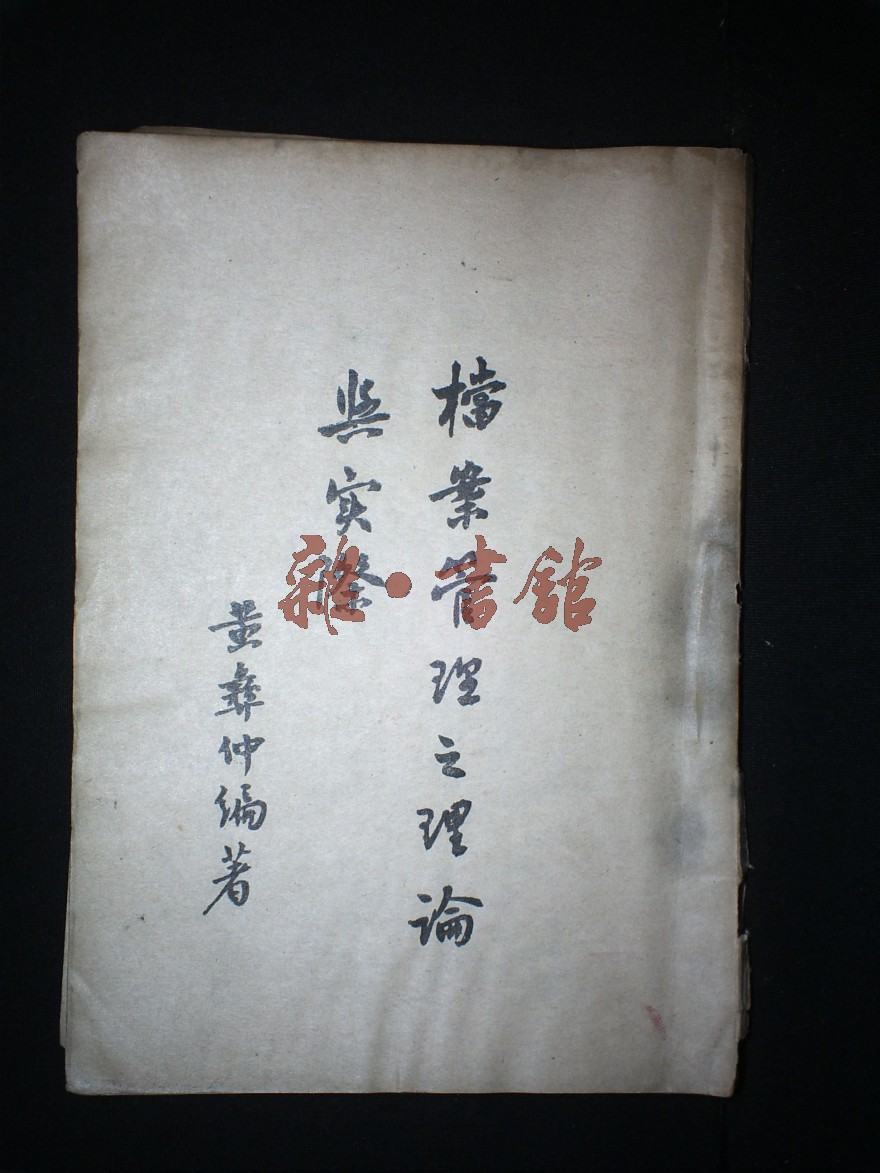 檔案管理之理論
與实際
黃彝仲編著
雜·書館